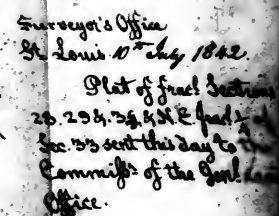 Surveyor's Office
St. Louis 10th July 1842.
Plat of fracl. Sections
28. 29 & 34, & N.E. fracl. 1/4
Sec. 33 sent this day to the
Commissr. of the Genl.
Office.